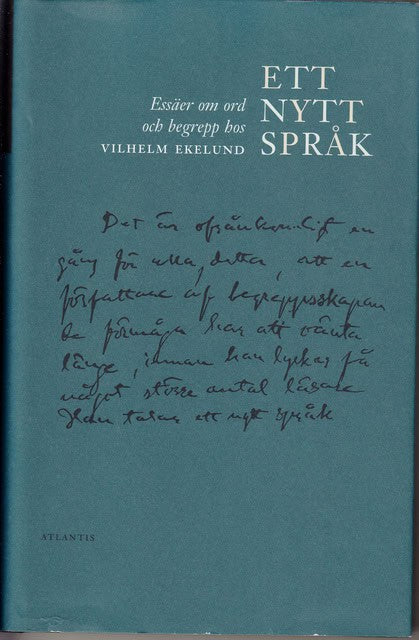 ETT
Essäer om ord NYTT
och begrepp hos SPRÅK
VILHELM EKELUND
Det är ofrånkomligt en
gång för alla, detta, att en
författare af begreppsskapan
de förmåga har att vänta
länge, innan han lyckas få
något större antal läsare
Han talar ett nytt språk
ATLANTIS